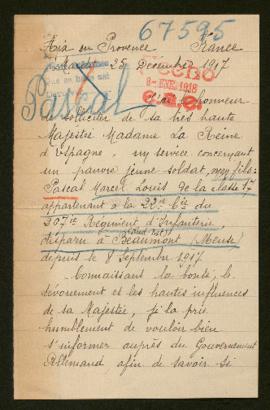 67595
Aix en Provence, France
25 Décembre 1917
HECHO
9-ENE. 1918
Pascal
l'honneur
de solliciter de sa très haute
Majesté Madame La Reine
d'Espagne, un service concernant
un pauvre jeune soldat, mon fils:
Pascal Marcel Louis de la classe 17
appartenant à la 23e Cie du
297e Régiment d'Infanterie,
disparu à Beaumont, Meuse
depuis le 8 Septembre 1917.
Connaissant la bonté, le
dévouement et les hautes influences
de sa Majestée, je la prie
humblement de vouloir bien
s'informer auprès du Gouvernement
Allemand afin de savoir si